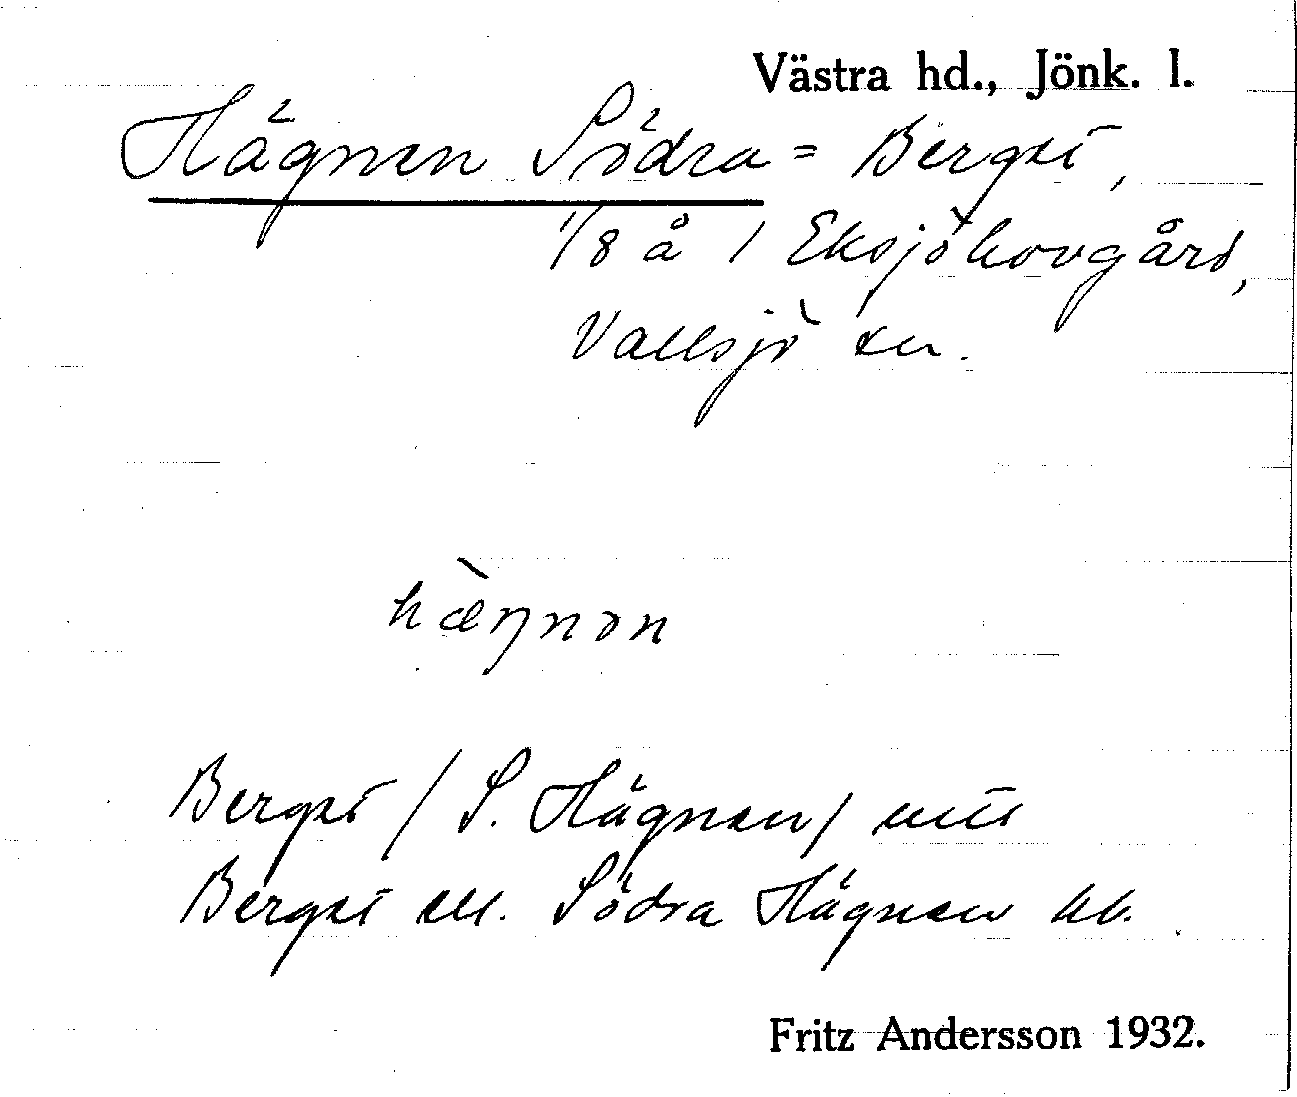 Västra hd., Jönk. l.
Hägnen Södra = Berget,
1/8 å 1 Eksjöhovgård,
Vallsjö sn.
hæ̀ŋnən
Berget / S. Hägnen /
Berget ell. Södra Hägnen hb.
Fritz Andersson 1932.